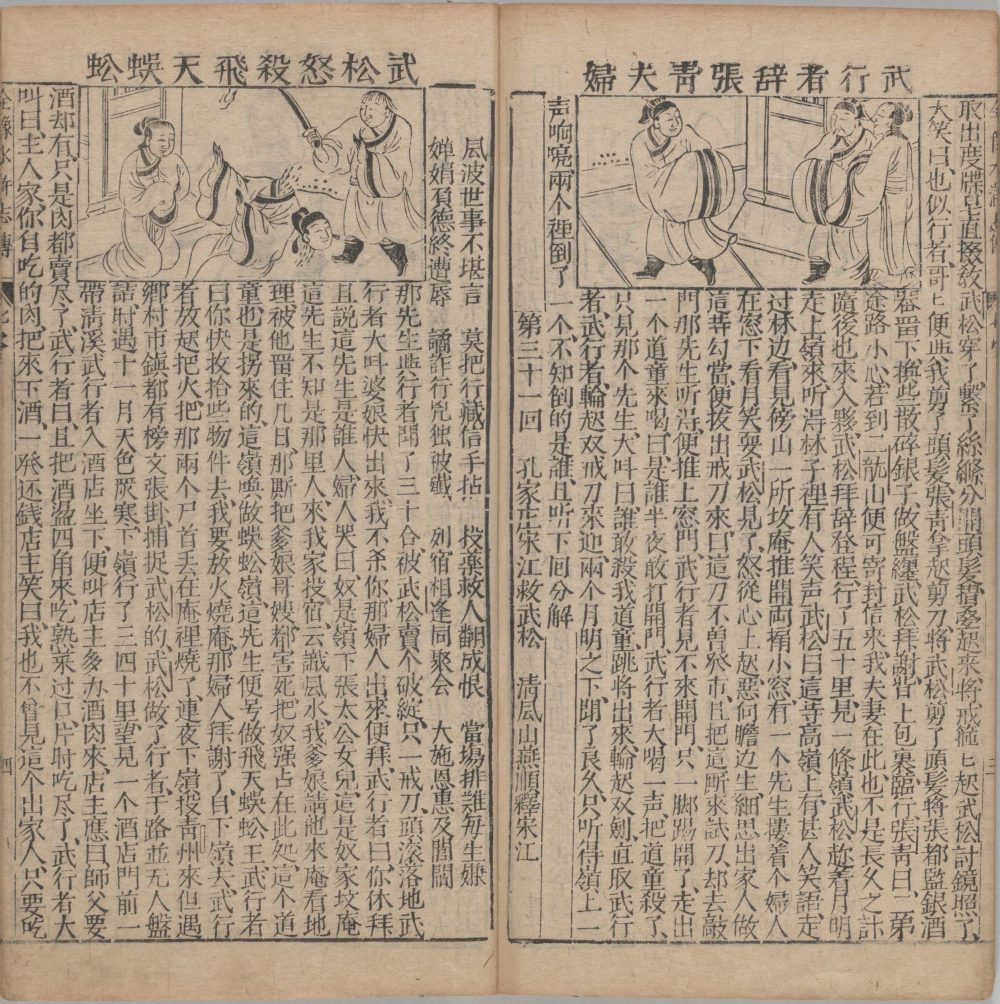 武行者辞張青夫婦
取出度牒皂直掇教武松穿了繫了絲縧分開頭髮摺叠起來將戒箍匕起武松討鏡照了
大笑曰也似行者哥匕便與我剪了頭髮張青拿起剪刀將武松剪了頭髮將張都監銀酒
器畄下換些散碎銀子做盤纏武松拜謝背上包裹臨行張青曰二弟
途路小心若到二龍山便可寄封信來我夫妻在此也不是長久之計
隨後也來入夥武松拜辞登程行了五十里見一條嶺武松趂着月明
走上嶺來听淂林子裡有人笑声武松曰這等高嶺上有甚人笑語走
过林边看見傍山一所坟庵推開両槅小窓有一个先生摟着个婦人
在窓下看月笑耍武松見了怒從心上起惡向膽边生細思出家人做
這等勾當便拔出戒刀來曰這刀不曽發市且把這厮來試刀却去敲
門那先生听淂便推上窓門武行者見不來開門只一脚踢開了走出
一个道童來喝曰是誰半夜敢打開門武行者大喝一声把道童殺了
只見那个先生大叫曰誰敢殺我道童跳將出來輪起双劍直取武行
者武行者輪起双戒刀來迎兩个月明之下閗了良久只听得嶺上一
声响喨兩个裡倒了一个不知倒的是誰且听下回分解
第三十一回 孔家庄宋江救武松 清风山燕順釋宋江
武松怒殺飛天蜈蚣
風波世事不堪言 莫把行藏信手拈 投薬救人翻成恨 當塲排誰每生嫌
嬋娟負德終遭辱 譎詐行兇独被殲 列宿相逢同聚会 大施恩惠及閭閻
那先生與行者閗了三十合被武松賣个破綻只一戒刀頭滚落地武
行者大叫婆娘快出來我不杀你那婦人出來便拜武行者曰你休拜
且說這先生是誰人婦人哭曰奴是嶺下張太公女兒這是奴家坟庵
這先生不知是那里人來我家投宿云識風水我爹娘請他來庵看地
理被他畱住几日那厮把爹娘哥嫂都害死把奴強占在此処這个道
童也是拐來的這嶺喚做蜈蚣嶺這先生便号做飛天蜈蚣王武行者
曰你快收拾些物件去我要放火燒庵那婦人拜謝了自下嶺去武行
者放起把火把那兩个尸首丢在庵裡燒了連夜下嶺投青州來但遇
鄉村市鎮都有榜文張掛捕捉武松的武松做了行者于路並无人盤
詰时遇十一月天色嚴寒下嶺行了三四十里望見一个酒店門前一
帶清溪武行者入酒店坐下便叫店主多办酒肉來店主應曰師父要
酒却有只是肉都賣尽了武行者曰且把酒盪四角來吃熟菜过口片时吃尽了武行者大
叫曰主人家你自吃的肉把來下酒一發还錢店主笑曰我也不曾見這个出家人只要吃
四